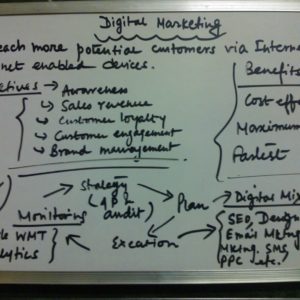 Digital Marketing
each more potential customers via Intern
net enabled devices.
ctives → Awareness
↳ Sales revenue
↳ Customer loyalty
↳ Customer engagement
↳ Brand management
Benefits
Cost eff
Maximum
Fastest
Stategy
audit)
Plan
Digital Mix
Monitoring
Excation
WMT
lytics
SEO, Design
Email Mktng
Mktng, SMS
PPC etc.